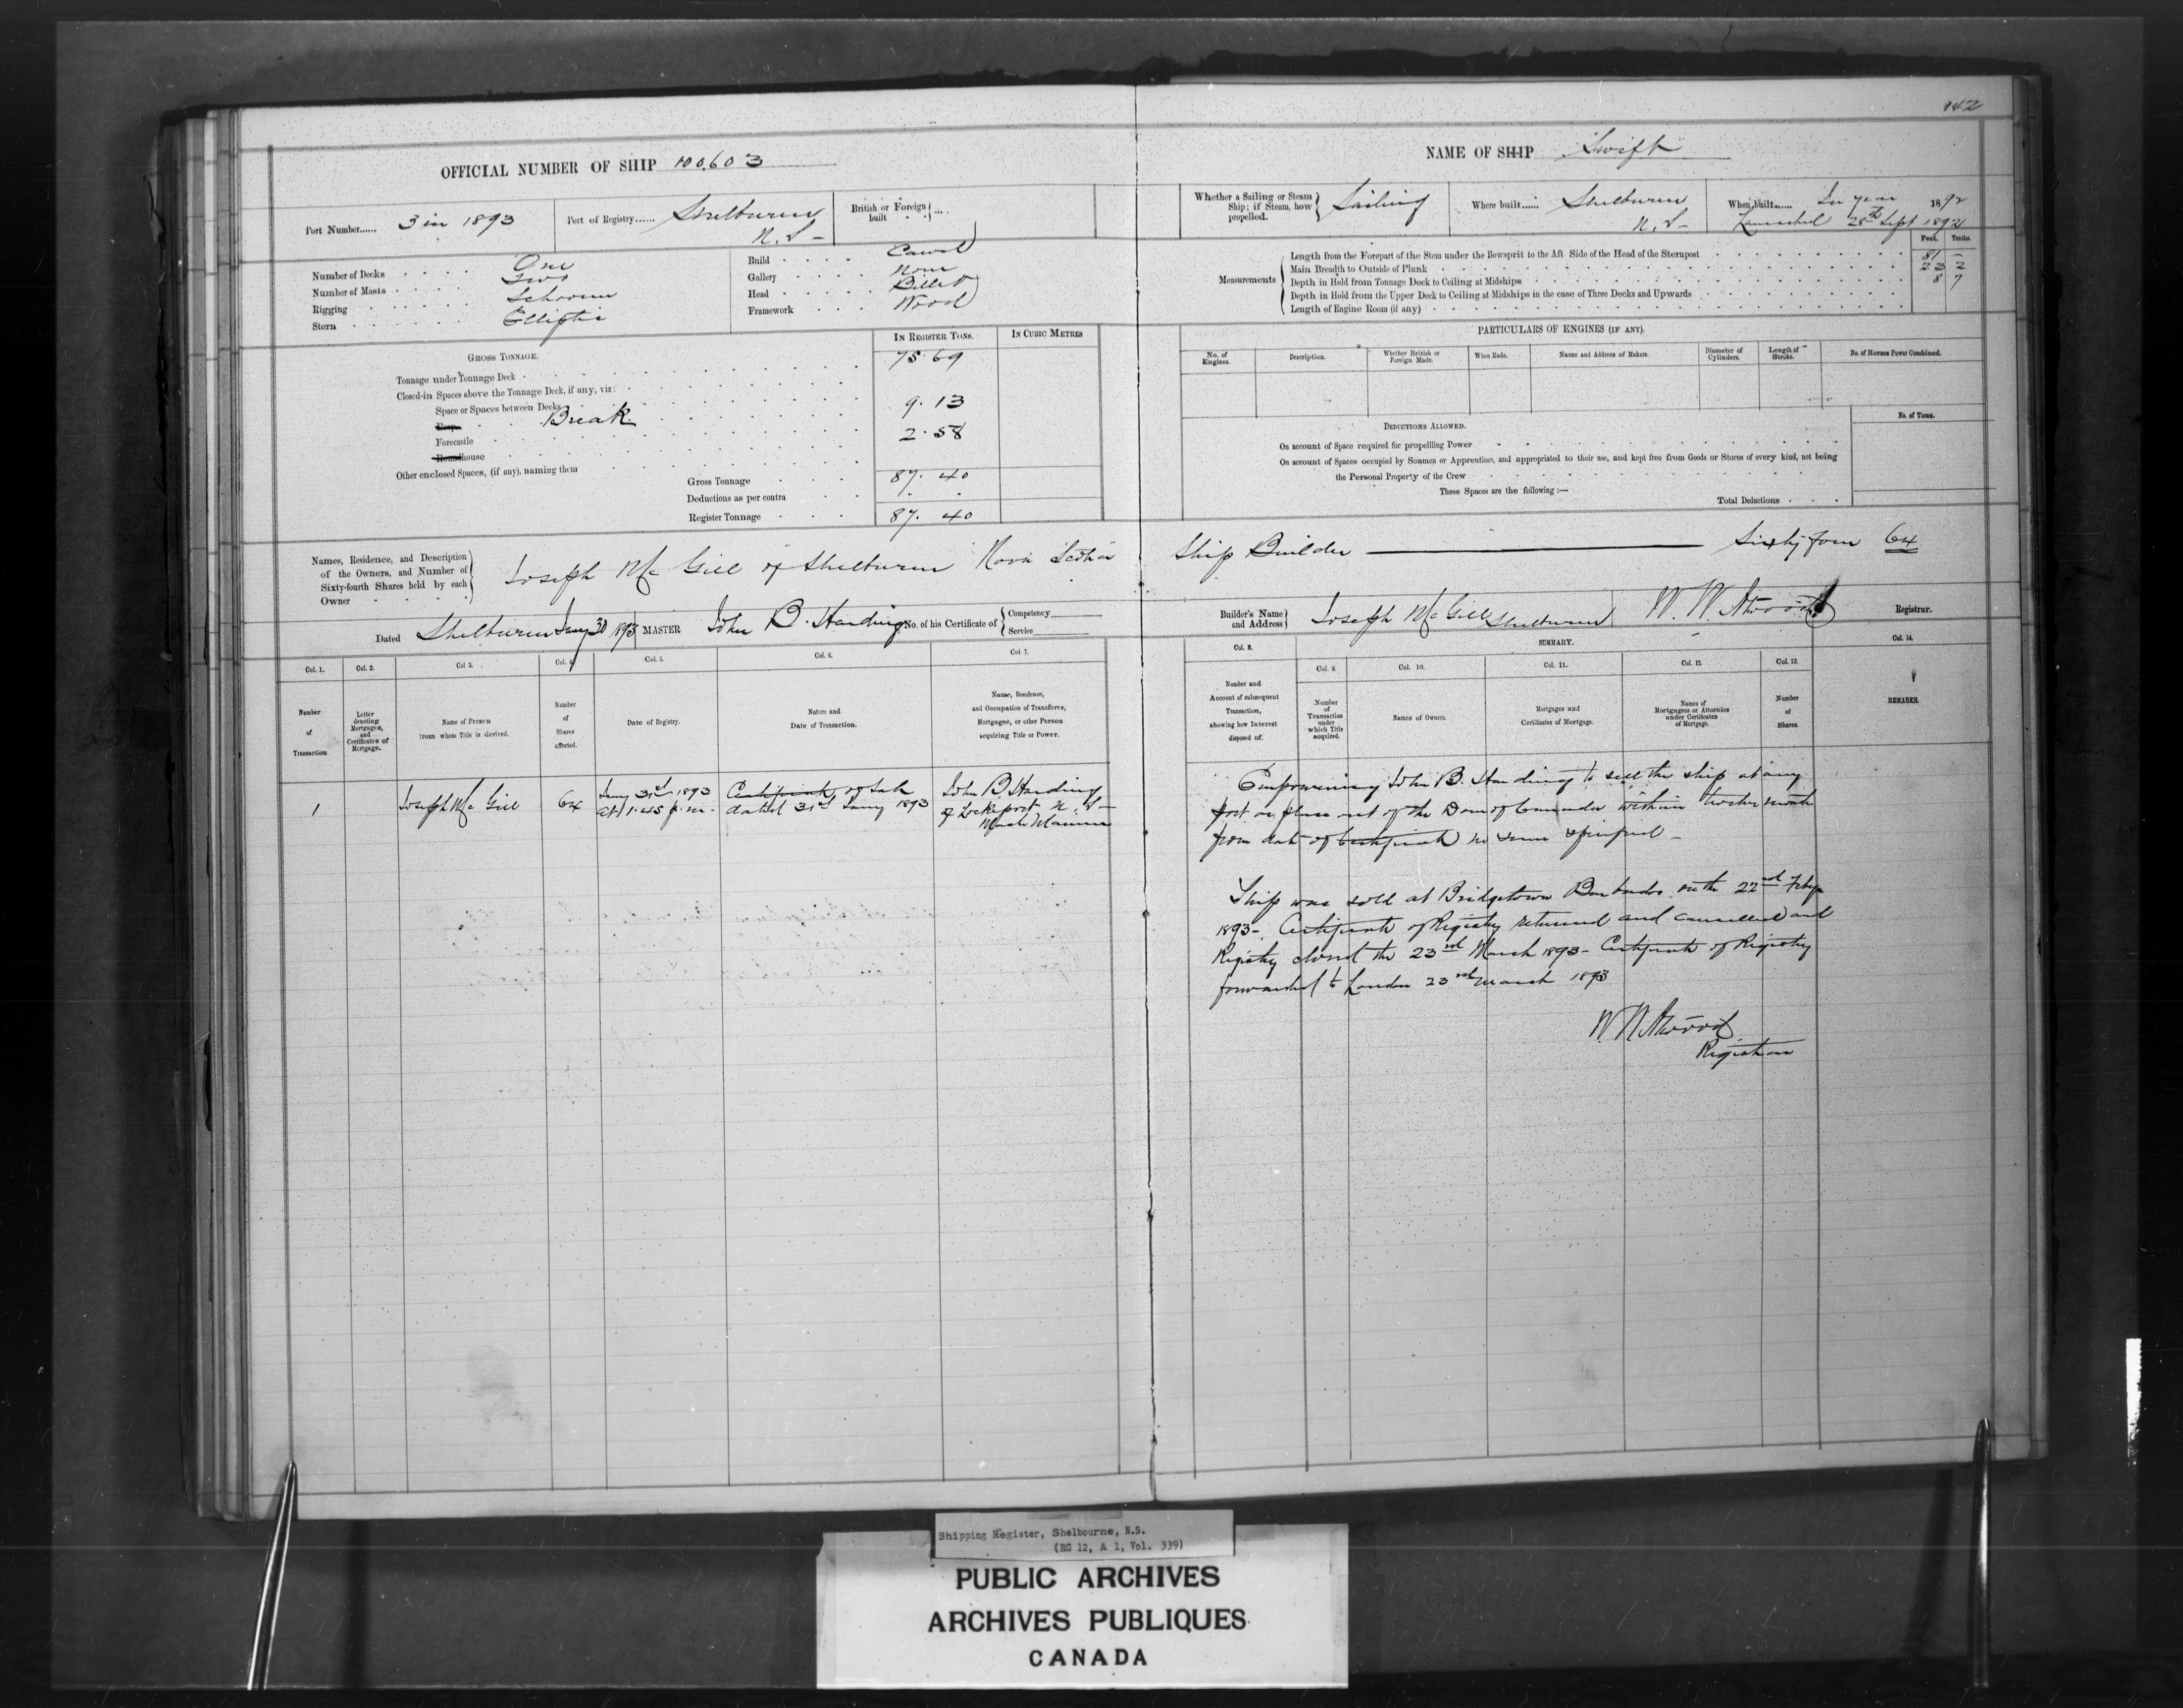 142
OFFICIAL NUMBER OF SHIP 100,603
NAME OF SHIP Swift
Port Number...... 3 in 1893
Port of Registry...... Shelburne N.S-
British or Foreign built ...
Whether a Sailing or Steam Ship; if Steam, how propelled. Sailing
Where built...... Shelburne N.S-
When built...... In year 1892
Launched 28th Sept 1892
Number of Decks One
Number of Masts Two
Rigging Schooner
Stern Elliptic
Build Carvel
Gallery None
Head Billet
Framework Wood
Measurements
Feet. Tenths.
Length from the Forepart of the Stem under the Bowsprit to the Aft Side of the Head of the Sternpost 81 -
Main Breadth to Outside of Plank 23 2
Depth in Hold from Tonnage Deck to Ceiling at Midships 8 7
Depth in Hold from the Upper Deck to Ceiling at Midships in the case of Three Decks and Upwards
Length of Engine Room (if any)
GROSS TONNAGE.
IN REGISTER TONS.
IN CUBIC METRES
Tonnage under Tonnage Deck 75.69
Closed-in Spaces above the Tonnage Deck, if any, viz:
Space or Spaces between Decks
Poop Break 9.13
Forecastle 2.58
Roundhouse
Other enclosed Spaces, (if any), naming them
Gross Tonnage 87.40
Deductions as per contra
Register Tonnage 87.40
PARTICULARS OF ENGINES (IF ANY).
No. of Engines.
Description.
Whether British or Foreign Made.
When Made.
Name and Address of Makers.
Diameter of Cylinders.
Length of Stroke.
No. of Horses Power Combined.
DEDUCTIONS ALLOWED.
No. of Tons.
On account of Space required for propelling Power
On account of Spaces occupied by Seamen or Apprentices, and appropriated to their use, and kept free from Goods or Stores of every kind, not being
the Personal Property of the Crew
These Spaces are the following:—
Total Deductions
Names, Residence, and Description of the Owners, and Number of Sixty-fourth Shares held by each Owner
Joseph McGill of Shelburne Nova Scotia Ship Builder — Sixty four 64
Dated Shelburne Jany 30 1893 MASTER John B. Harding No. of his Certificate of
Competency
Service
Builder's Name and Address Joseph McGill Shelburne W. W. Atwood Registrar.
Col. 1. Col. 2. Col 3. Col. 4. Col. 5. Col. 6. Col 7.
Number of Transaction
Letter denoting Mortgages, and Certificates of Mortgage.
Name of Person from whom Title is derived.
Number of Shares affected.
Date of Registry.
Nature and Date of Transaction.
Name, Residence, and Occupation of Transferee, Mortgagee, or other Person acquiring Title or Power.
Col. 8.
Number and Account of subsequent Transaction, showing how Interest disposed of.
SUMMARY.
Col. 9. Col. 10. Col. 11. Col. 12. Col. 13.
Number of Transaction under which Title acquired.
Names of Owners.
Mortgages and Certificates of Mortgage.
Names of Mortgagees or Attornies under Certificates of Mortgage.
Number of Shares.
Col. 14.
REMARKS.
1
Joseph McGill
64
Jany 31st 1893
at 1.45 p.m.
Certificate of Sale
dated 31st Jany 1893
John B Harding
of Lockeport N.S-
Master Mariner
Empowering John B. Harding to sell the ship at any
port or place out of the Dom of Canada within twelve month
from date of Certificate no sum specified -
Ship was sold at Bridgetown Barbados on the 22nd Feby
1893-. Certificate of Registry returned and cancelled and
Registry closed the 23rd March 1893- Certificate of Registry
forwarded to London 23rd March 1893
W W Atwood
Registrar
Shipping Register, Shelbourne, N.S.
(RG 12, A 1, Vol. 339)
PUBLIC ARCHIVES
ARCHIVES PUBLIQUES
CANADA